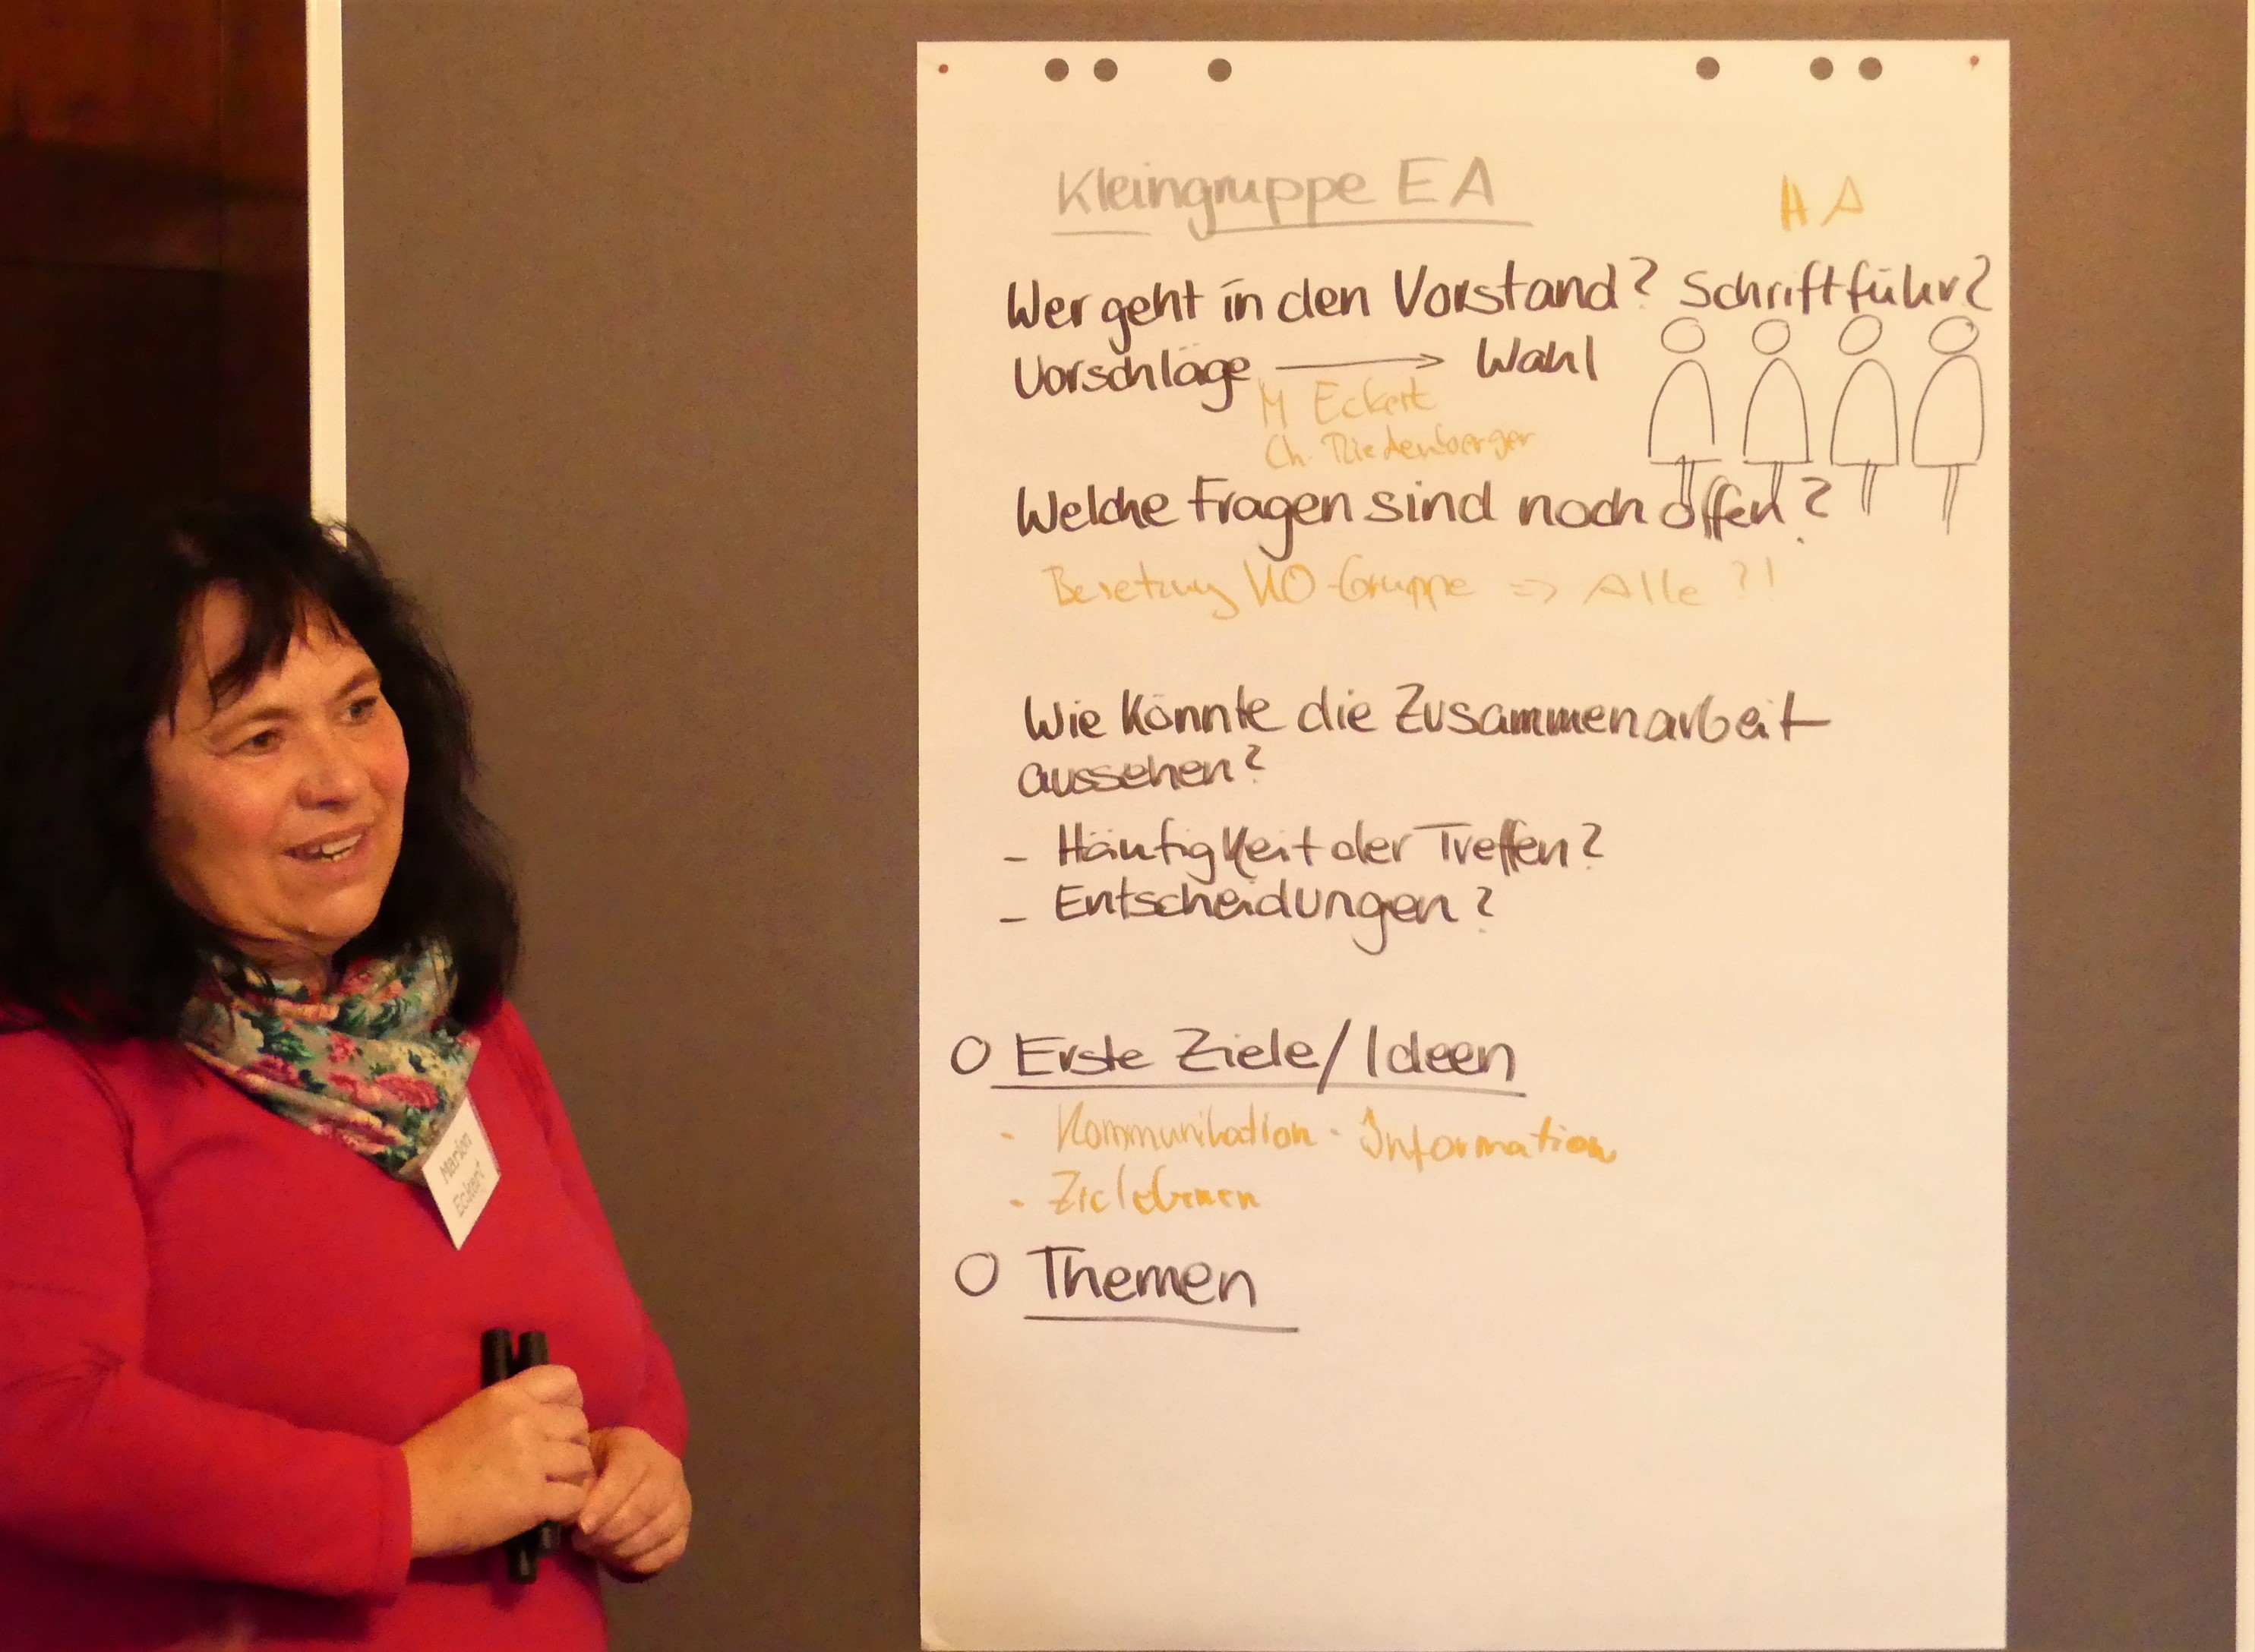 Kleingruppe EA
HA
Wer geht in den Vorstand? Schriftführ?
Vorschläge → Wahl
M Eckert
Ch.
Welche Fragen sind noch offen?
Besetzung KO-Gruppe => Alle ?!
Wie könnte die Zusammenarbeit
aussehen?
- Häufigkeit der Treffen?
- Entscheidungen?
O Erste Ziele/Ideen
- Kommunikation - Information
- Zielebenen
O Themen
Marion
Eckert